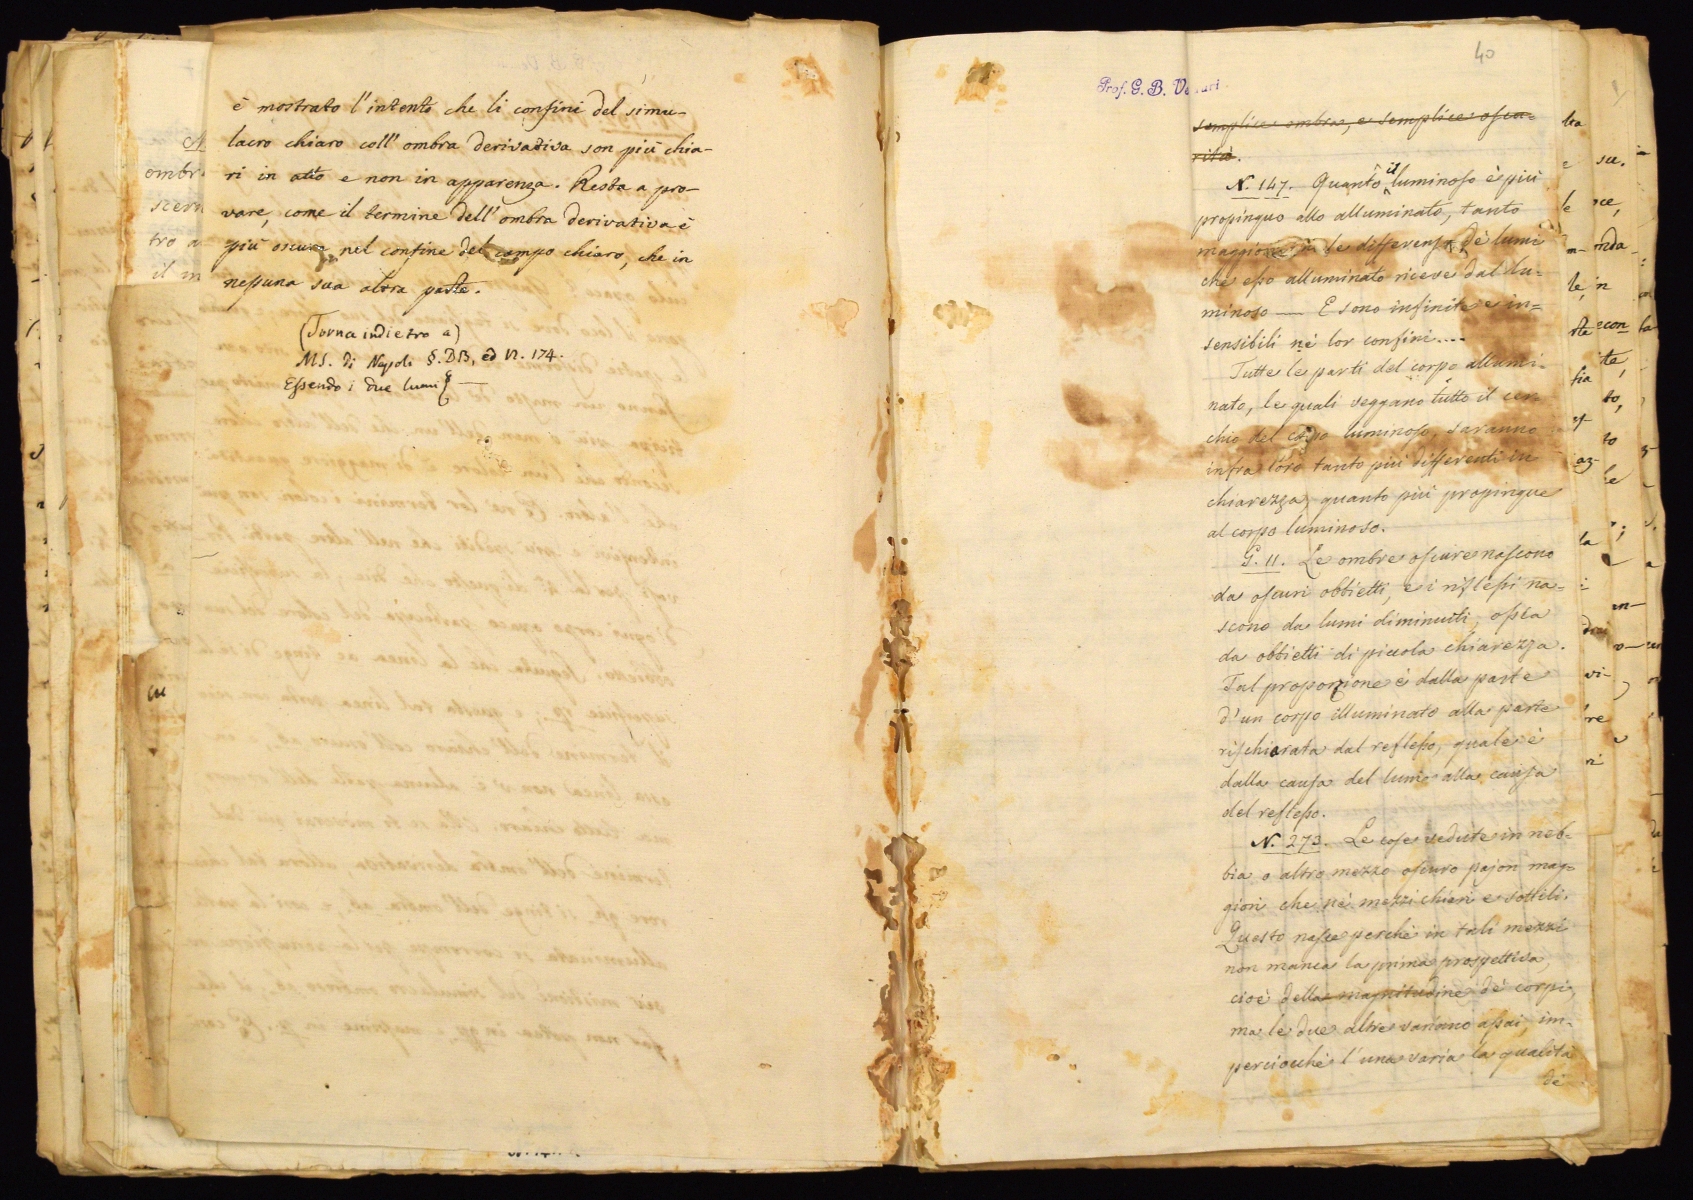 è mostrato l'intento che li confini del simu-
lacro chiaro coll'ombra derivativa son più chia-
ri in atto e non in apparenza. Resta a pro-
vare, come il termine dell'ombra derivativa è
più oscura nel confine del campo chiaro, che in
nessuna sua altra parte.
(Torna indietro a)
MS. di Napoli §. DB, ed N. 174.
Essendo i due lumi
40
Prof. G. B. Venturi
semplice ombra, e semplice oscu=
rità.
N. 147. Quanto il luminoso è più
propinquo allo alluminato, tanto
maggiore le differenze de' lumi
che esso alluminato riceve dal lu-
minoso — E sono infinite e in=
sensibili ne' lor confini....
Tutte le parti del corpo allumi-
nato, le quali veggano tutto il cer-
chio del corpo luminoso, saranno
infra loro tanto più differenti in
chiarezza, quanto più propinque
al corpo luminoso.
G. 11. Le ombre oscure nascono
da oscuri obbietti, e i riflessi na=
scono da lumi diminuiti, ossia
da obbietti di picciola chiarezza.
Tal proporzione è dalla parte
d'un corpo illuminato alla parte
rischiarata dal reflesso, quale è
dalla causa del lume alla causa
del reflesso.
N. 273. Le cose vedute in neb-
bia o altro mezzo oscuro pajon mag-
giori che ne' mezzi chiari e sottili.
Questo nasce perchè in tali mezzi
non manca la prima prospettiva,
cioè della magnitudine de' corpi,
ma le due altre variano assai, im-
perciocchè l'una varia la qualità
de'